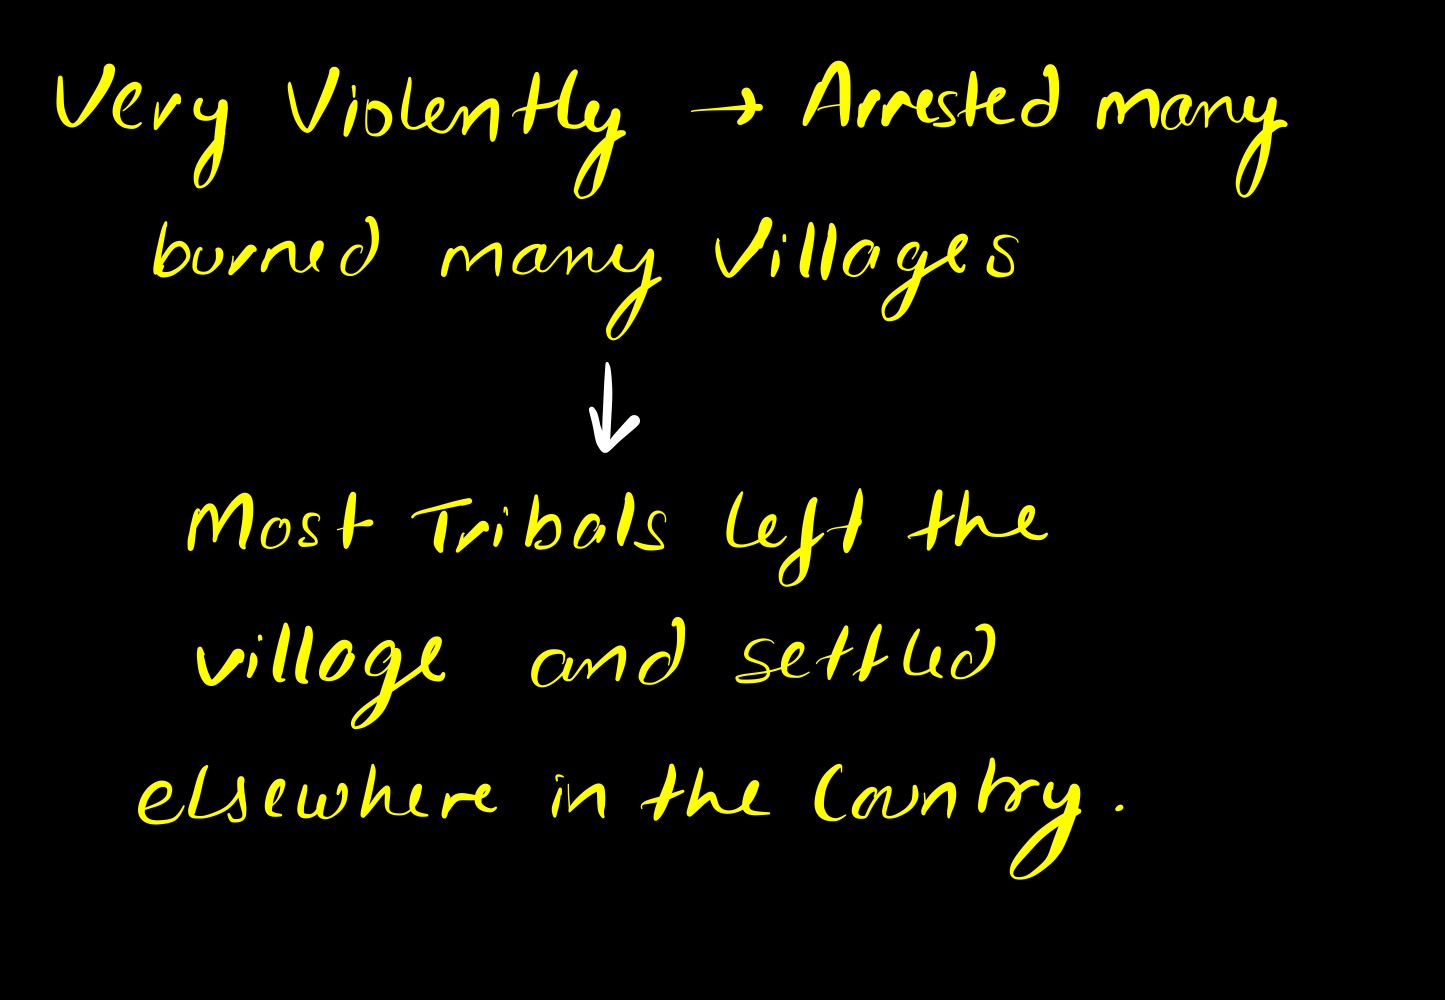 Very Violently → Arrested many
burned many Villages
↓
Most Tribals left the
village and settled
elsewhere in the Country.